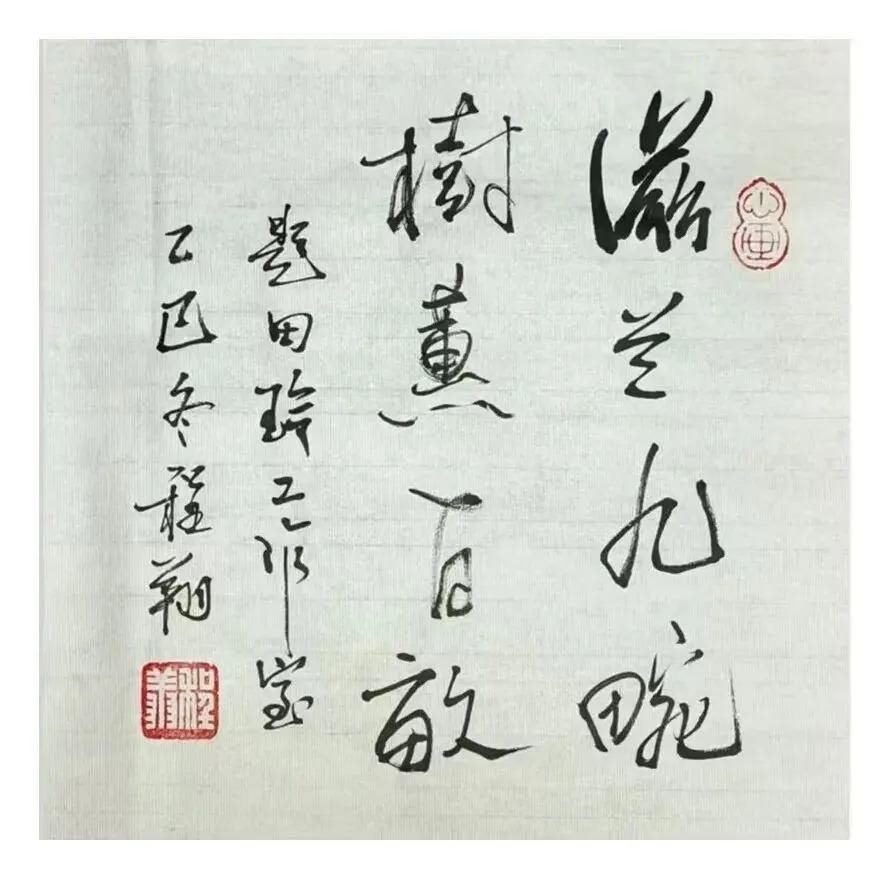 滋兰九畹
樹蕙百畝
题田工作室
乙巳冬程翔
程翔